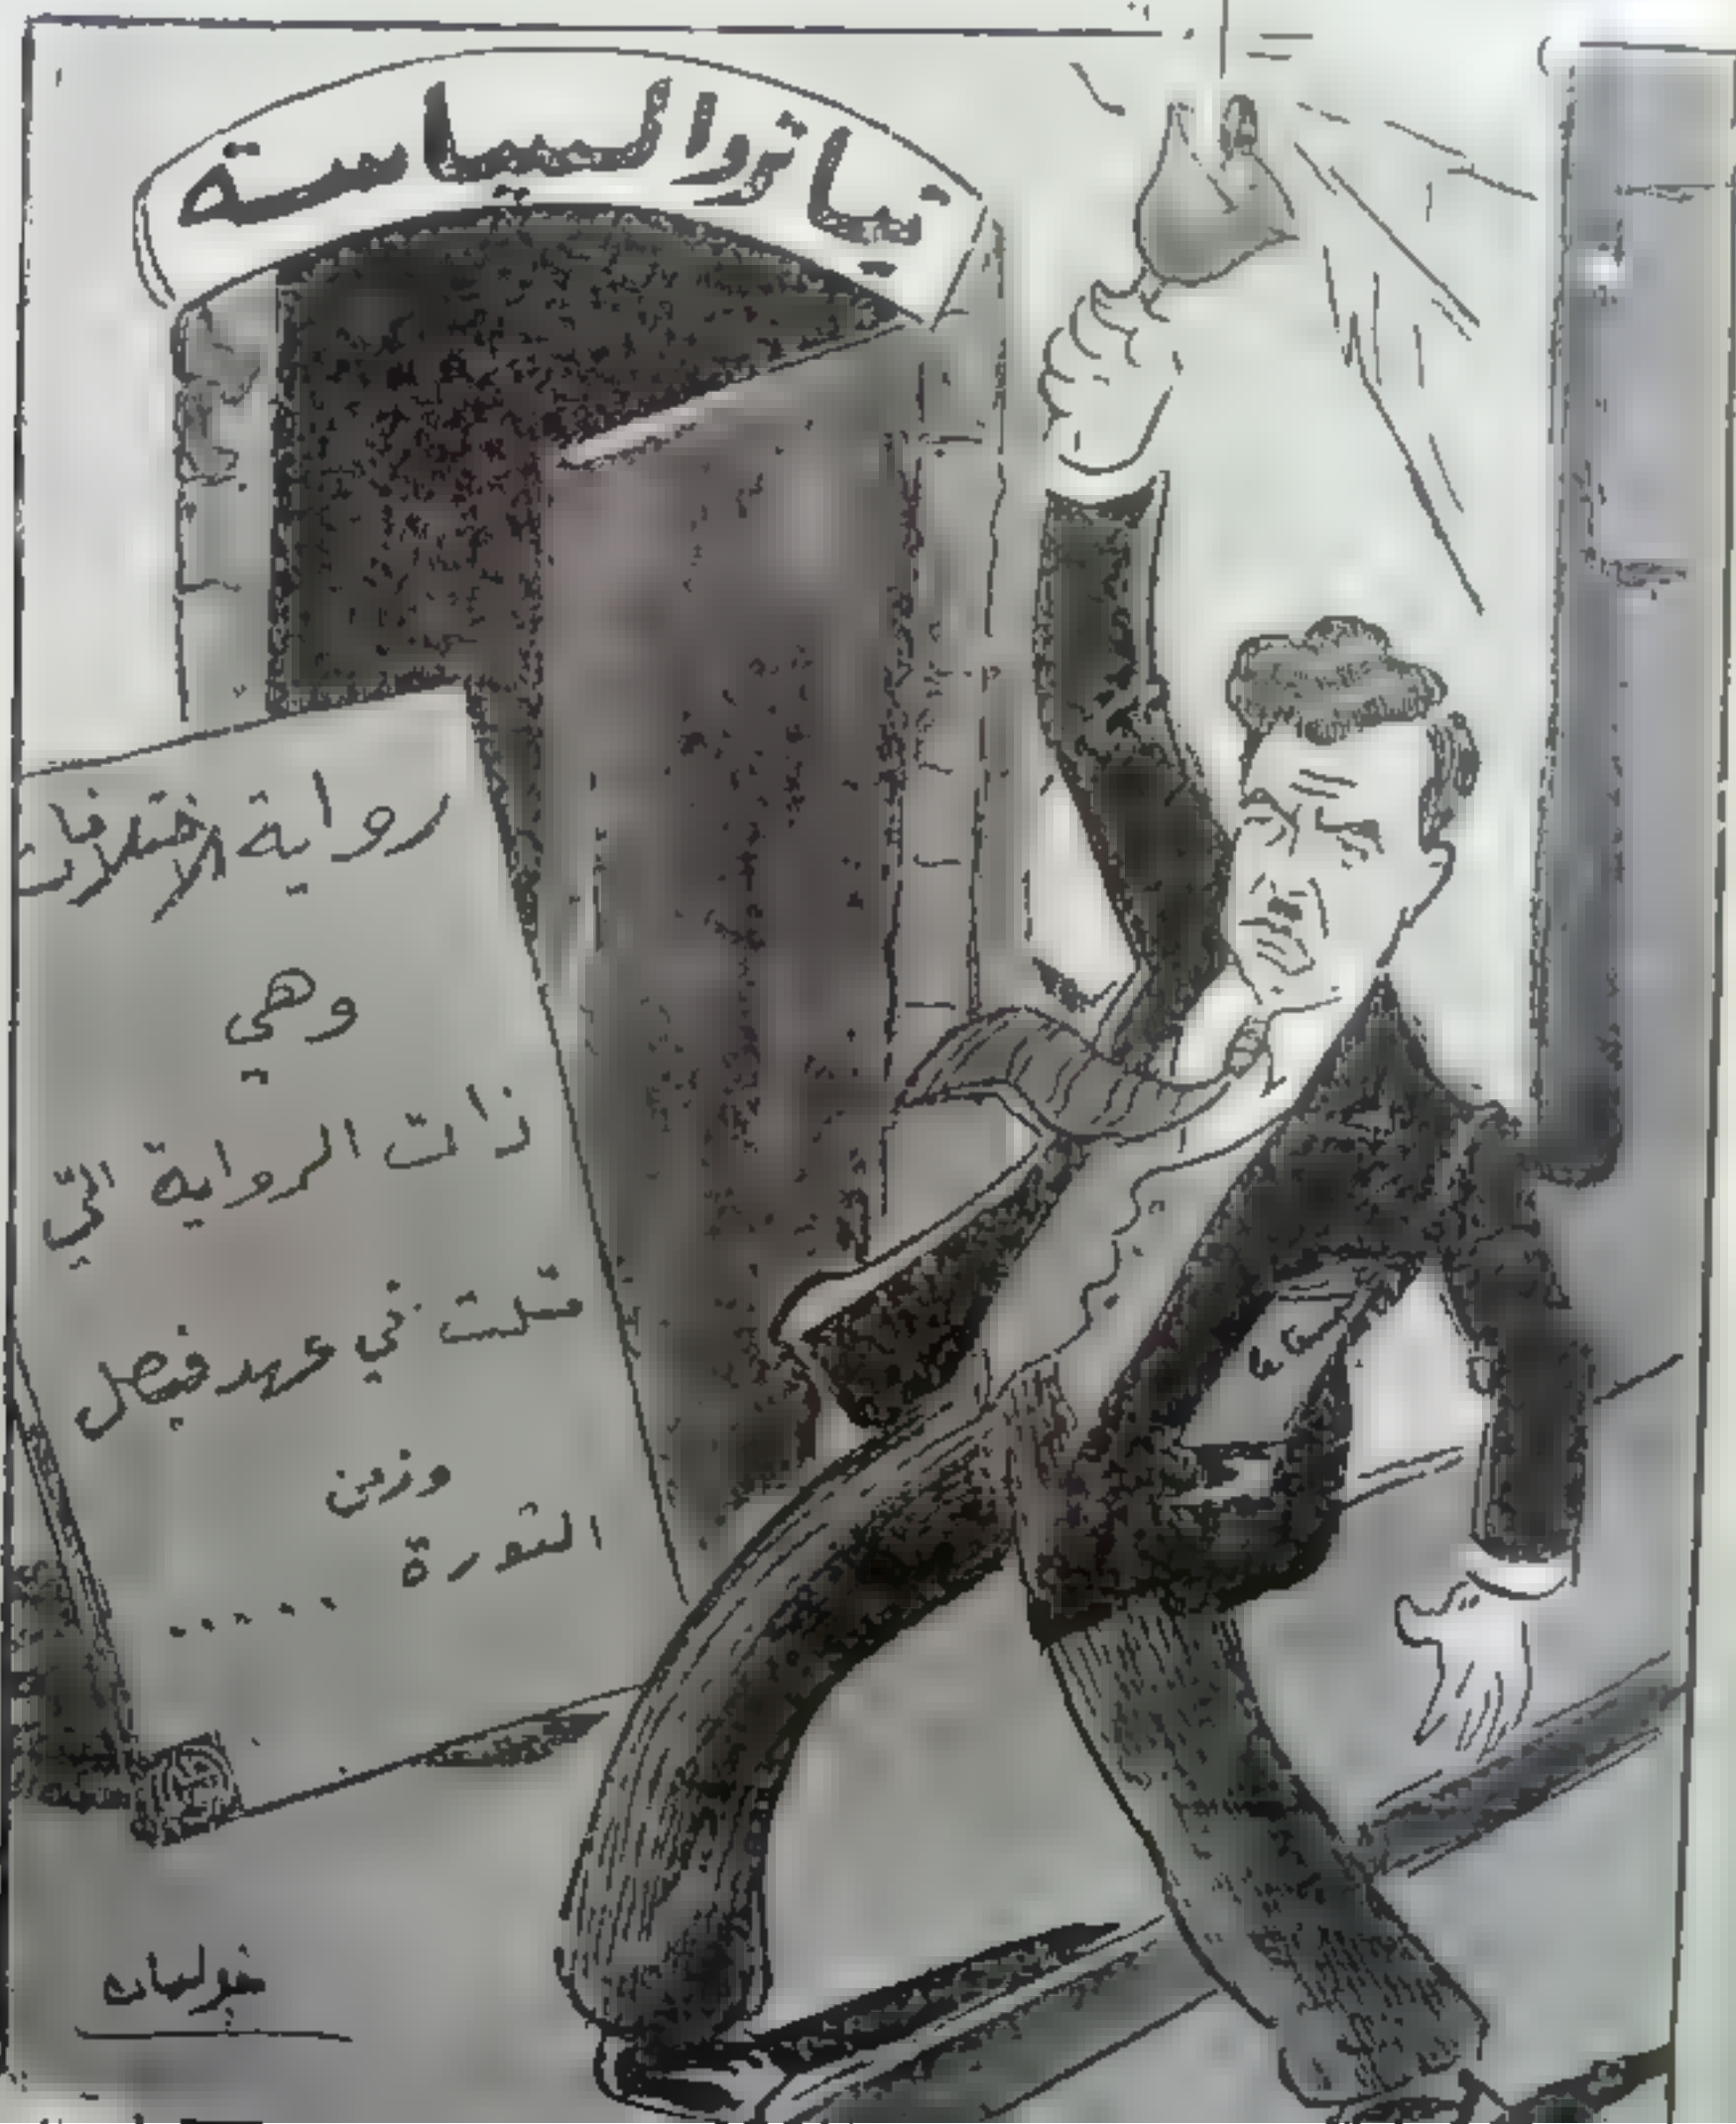 تياترو السياسة
رواية الاختلافات
وهي
ذات الرواية التي
مثلت في عهد فيصل
وزمن
الثورة .....